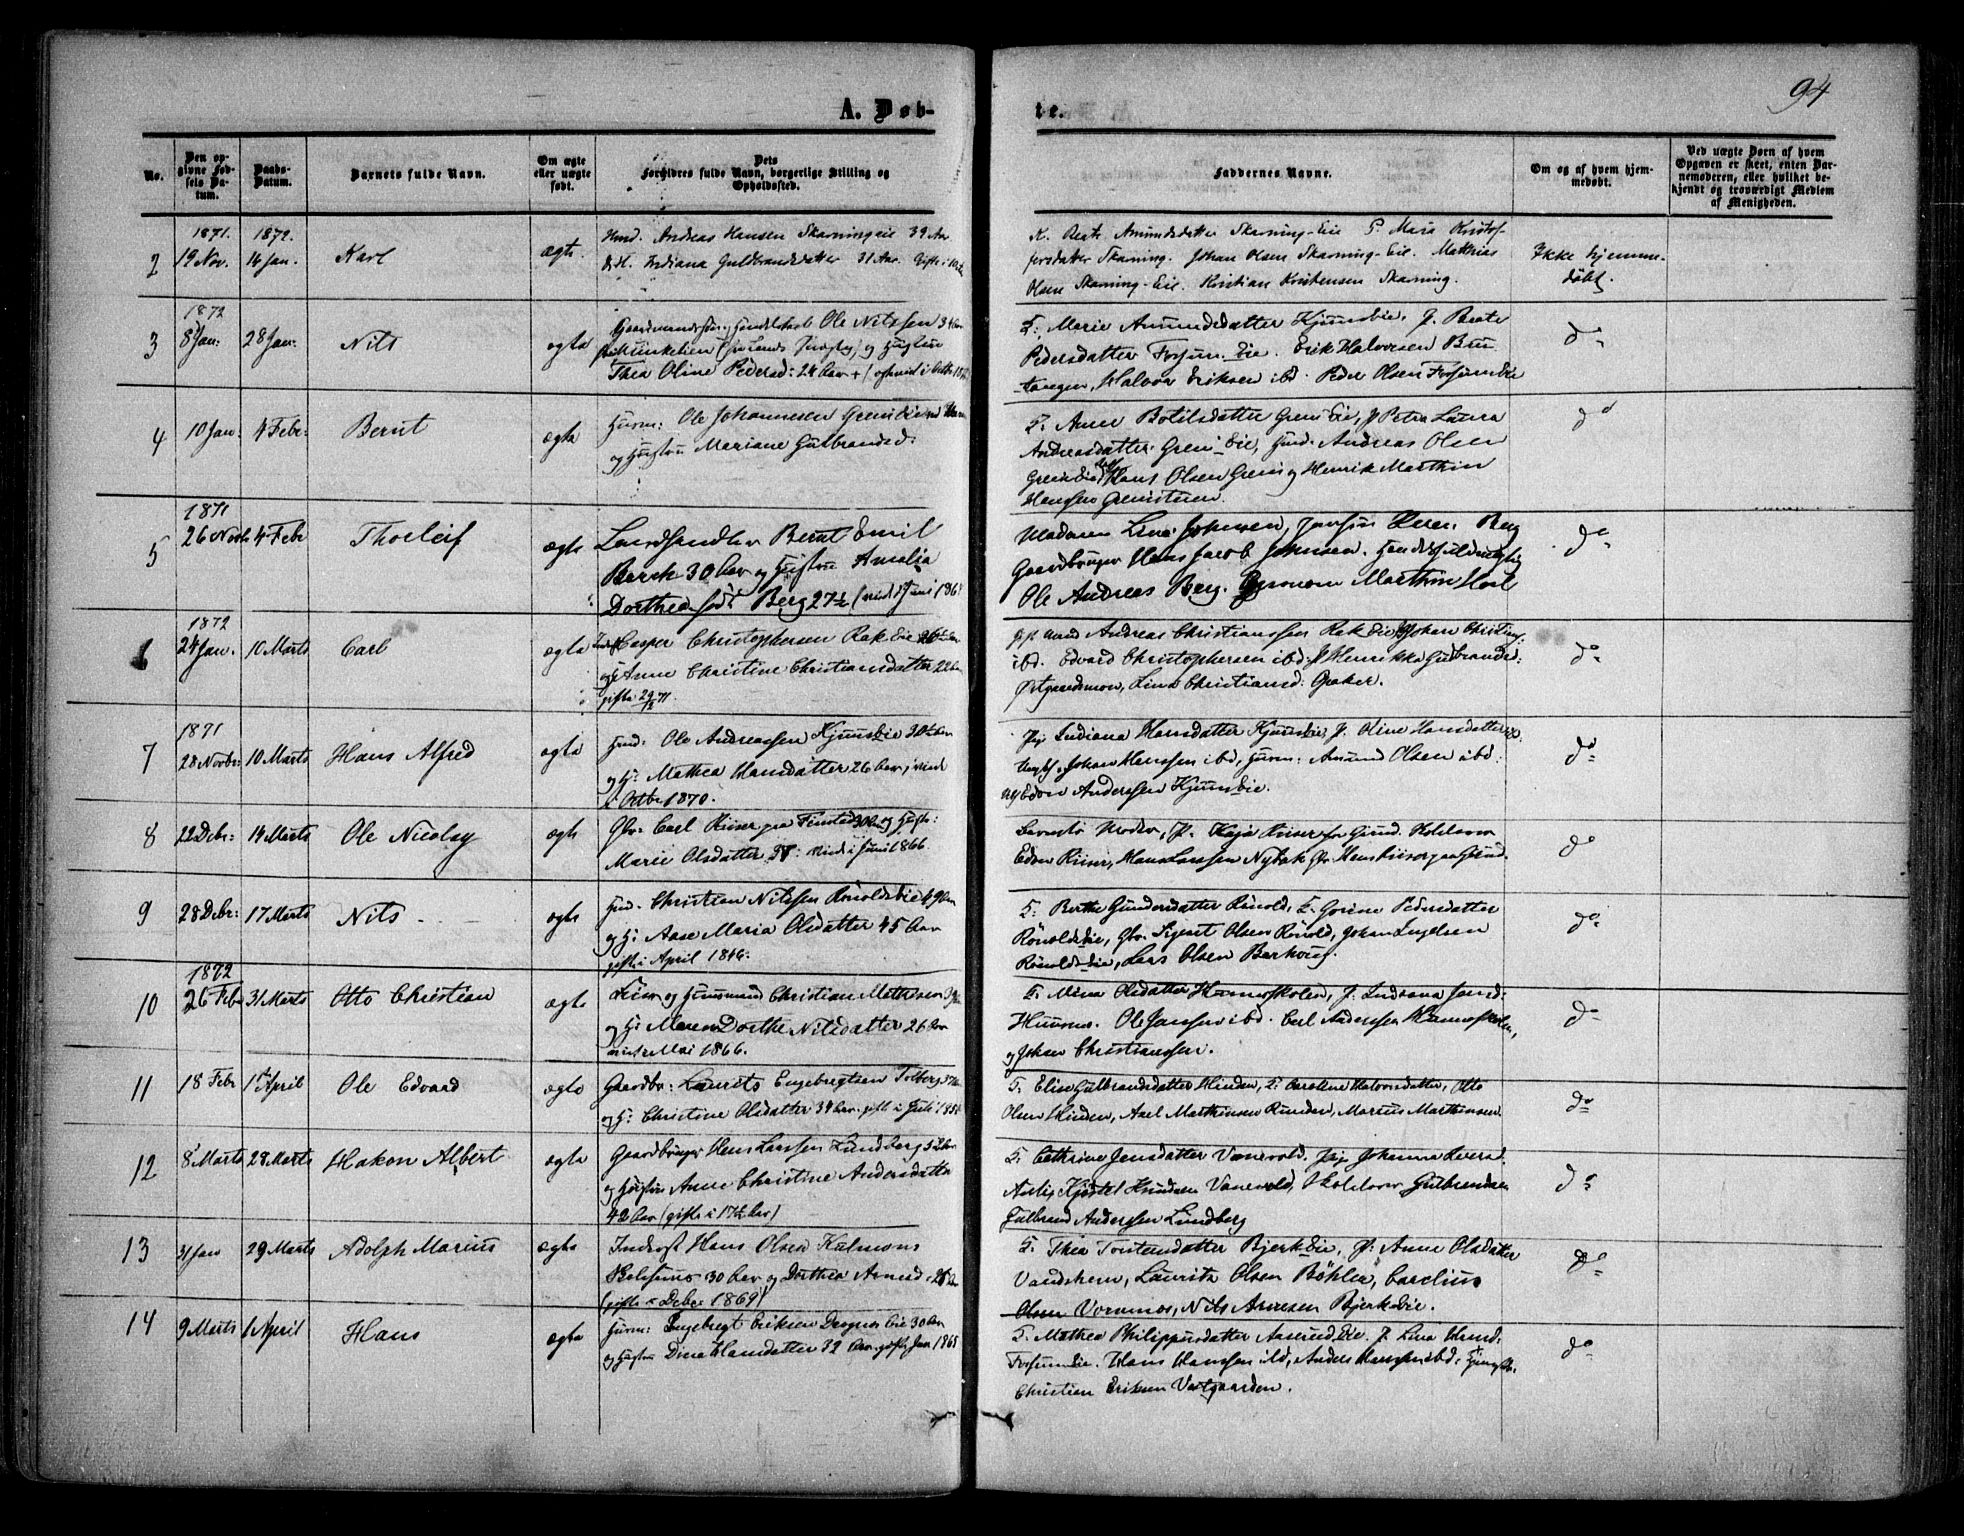 94
A. Døb-
te.
No.
Den op-
givne Fød-
sels Da-
tum.
Daabs-
Datum.
Barnets fulde Navn.
Om ægte
eller uægte
født.
Dets
Forældres fulde Navn, borgerlige Stilling og
Opholdssted.
Faddernes Navne.
Om og af hvem hjem-
medøbt.
Ved uægte Børn af hvem
Opgaven er skeet, enten Bar-
nemoderen, eller hvilket be-
kjendt og troværdigt Medlem
af Menigheden.
1871. 1872.
2 19 Nov. 14 Jan. Karl ægte
Andreas Hansen Skarningeie 32 Aar
Indiana Guldbrandsdatter 31 Aar
K. Beate Amundsdatter Skarning-Eie P Maria Kristof-
fersdatter Skarning. Johan Olsen Skarning-Eie. Mathias
Olsen Skarning-Eie. Kristian Kristensen Skarning.
Ikke hjemme-
døbt.
1872
3 8 Jan: 28 Jan: Nils ægte
Ole Nilssen 34
og Hustru
Thea Oline Pedersd: 24 Aar
K: Marie Amundsdatter Kjuuseie, P. Beate
Pedersdatter Fossum Eie. Erik Halvorsen Bru
tangen, Halvor Eriksen ibd. Peder Olsen Fossumeie
do
4 10 Jan: 4 Febr: Bernt ægte
Huusm: Ole Johannesen Grenieie
og Hustru Mariane Gulbrandsd:
K. Anne Botilsdatter Greni Eie, P Petra Laura
Andreasdatter Greni Eie, Huusm: Andreas Olsen
Greni Eie, Hans Olsen Greni og Henrik Marthin
Hanssen Grenistuen.
do
1871
5 26 Novb 4 Febr Thorleif ægte
Landhandler Bernt Emil
Borch 30 Aar og Hustru Amalia
Dorthea født Berg 27½ (viet i Juni 186
Madame Lina Johnsen, Jomfru Berg
Gaardbruger Hans Jacob Johnsen.
Ole Andreas Berg. Marthin Holt
do
1872
6 24 Jan. 10 Marts Carl ægte
Casper Christophersen Rak Eie
Anne Christine Christiansdatter 22 Aar
gifte 29/12 71.
Andreas Christianssen Rak Eie, Johan Christians.
ibd. Edvard Christophersen ibd. P Henrikka Gulbrandsd:
Østgaardsmoen, Lina Christiansd: Gaaker.
do
1871
7 28 Novbr: 10 Marts Hans Alfred ægte
Huusm: Ole Andreassen Kjuuseie 30½ Aar
og H: Mathea Hansdatter 26 Aar, viede
i Octbr 1870.
Pige Indiana Hansdatter Kjuuseie, P. Oline Hansdatter
Johan Hanssen ibd, Huusm: Amund Olsen ibd:
Anderssen Kjuuseie.
do
8 22 Debr: 14 Marts Ole Nicolay ægte
Gbr: Carl Riiser paa Finstad 30 Aar og Hustr:
Marie Olsdatter viede i Juni 1866.
Barnets Moder, P. Kaja Riiser
Edvin Riiser, Hans Larssen Nybak
do
9 28 Debr: 17 Marts Nils ægte
Christian Nilssen Rønoldseie 49 Aar
og H: Aase Maria Olsdatter 45 Aar
gifte i April 1846.
K: Berthe Gundersdatter Rønold, K: Gorine Pedersdatter
Rønoldseie, Gbr. Sigart Olsen Rønold, Johan Engelsen
Rønoldseie, Lars Olsen Barhoug.
do
1872
10 26 Febr 31 Marts Otto Christian ægte
Leier og Huusmand Christian Mathisen
og H: Maren Dorthe Nilsdatter 26 Aar
viede Mai 1866.
K: Mina Olsdatter P: Indiana Jansd:
Huusmo. Ole Janssen ibd. Carl Anderssen
og Johan Christianssen.
do
11 18 Febr 1 April Ole Edvard ægte
Gaardbr: Laurits Engebregtsen Tolberg
og H: Christine Olsdatter 34 Aar, gifte i Juli 18
K: Elise Gulbrandsdatter Hinden, K: Caroline Halvorsdatter, Otto
Olsen Hinden, Axel Marthinsen Runden, Marius Marthinsen
do
12 8 Marts 28 Marts Hakon Albert ægte
Gaardbruger Hans Larssen Lundberg 52 Aar
og Hustru Anne Christine Andersdatter
42 Aar (gifte i 17½ Aar)
K: Cathrine Jensdatter Vanevold. Pige Johanna
Kjøstel Knudsen Vanevold, Skolelærer Gulbrandsen
Gulbrand Anderssen Lundberg
do
13 31 Jan 29 Marts Adolph Marius ægte
Inderst Hans Olsen Kalmons
30 Aar og Dorthea Arnesd:
(gifte i Debr 1869)
K: Thea Torstensdatter Bjerkeeie, P: Anne Olsdatter
Vandshem, Lauritz Olsen Bøhler, Carelius
Olsen Vormnæs, Nils Arnesen Bjerkeeie.
do
14 9 Marts 1 April Hans ægte
Huusm: Engebregt Eriksen Dragnes Eie 30 Aar
og Hustru Dina Hansdatter 32 Aar gifte Jan 1868
K. Mathea Philippusdatter Aaserud Eie. P. Lina
Fossumeie. Hans Hanssen ibd, Anders Hanssen ibd.
Christian Eriksen Vestgaarden.
do